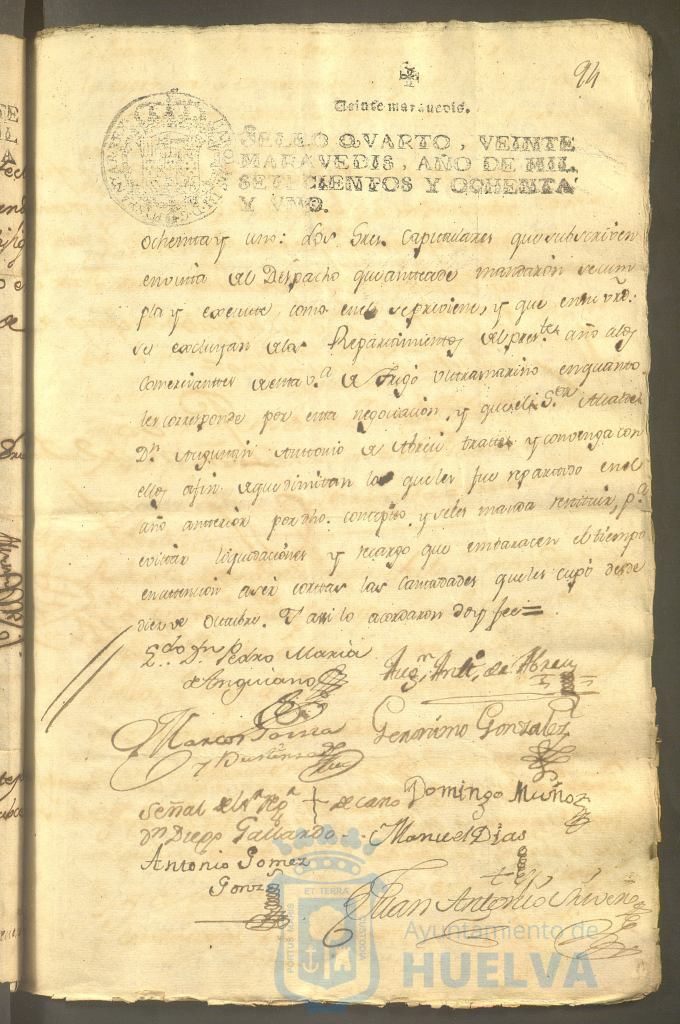 94
Veinte marauedis.
SELLO QVARTO, VEINTE
MARAVEDIS, AÑO DE MIL
SETECIENTOS Y OCHENTA
Y VNO.
ochenta y uno: los Sres. Capitulares que subscriven
en vista del Despacho que antecede mandaron se cum
pla y execute como en el se previene, y que en su vrd.
se excluyan de los Repartimientos del pres.te año a los
Comerciantes de esta v.a de trigo ultramarino en quanto
les corresponde por esta negociacion, y que el S.or Alcalde
Dn. Augustin Antonio de Abreu trate y convenga con
ellos a fin de que dimitan lo que les fue repartido en el
año anterior por dho. concepto y se les manda restituir, p.a
evitar liquidaciones y recargo que embaracen el tiempo
en atencion a ser cortas las cantidades que les cupo desde
diez de Octubre. Y asi lo acordaron doy fee=
L.do Dn. Pedro Maria
de Anguiano
Aug.n Ant.o de Abreu
Marcos
y
Geronimo Gonzalez
Señal del + de cano
Domingo Muñoz
Dn Diego Gallardo
Manuel Dias
Antonio Gomez
Gonz
Juan Antonio
ET TERRA
PORTUS MARIS
CUSTODIA
Ayuntamiento de
HUELVA